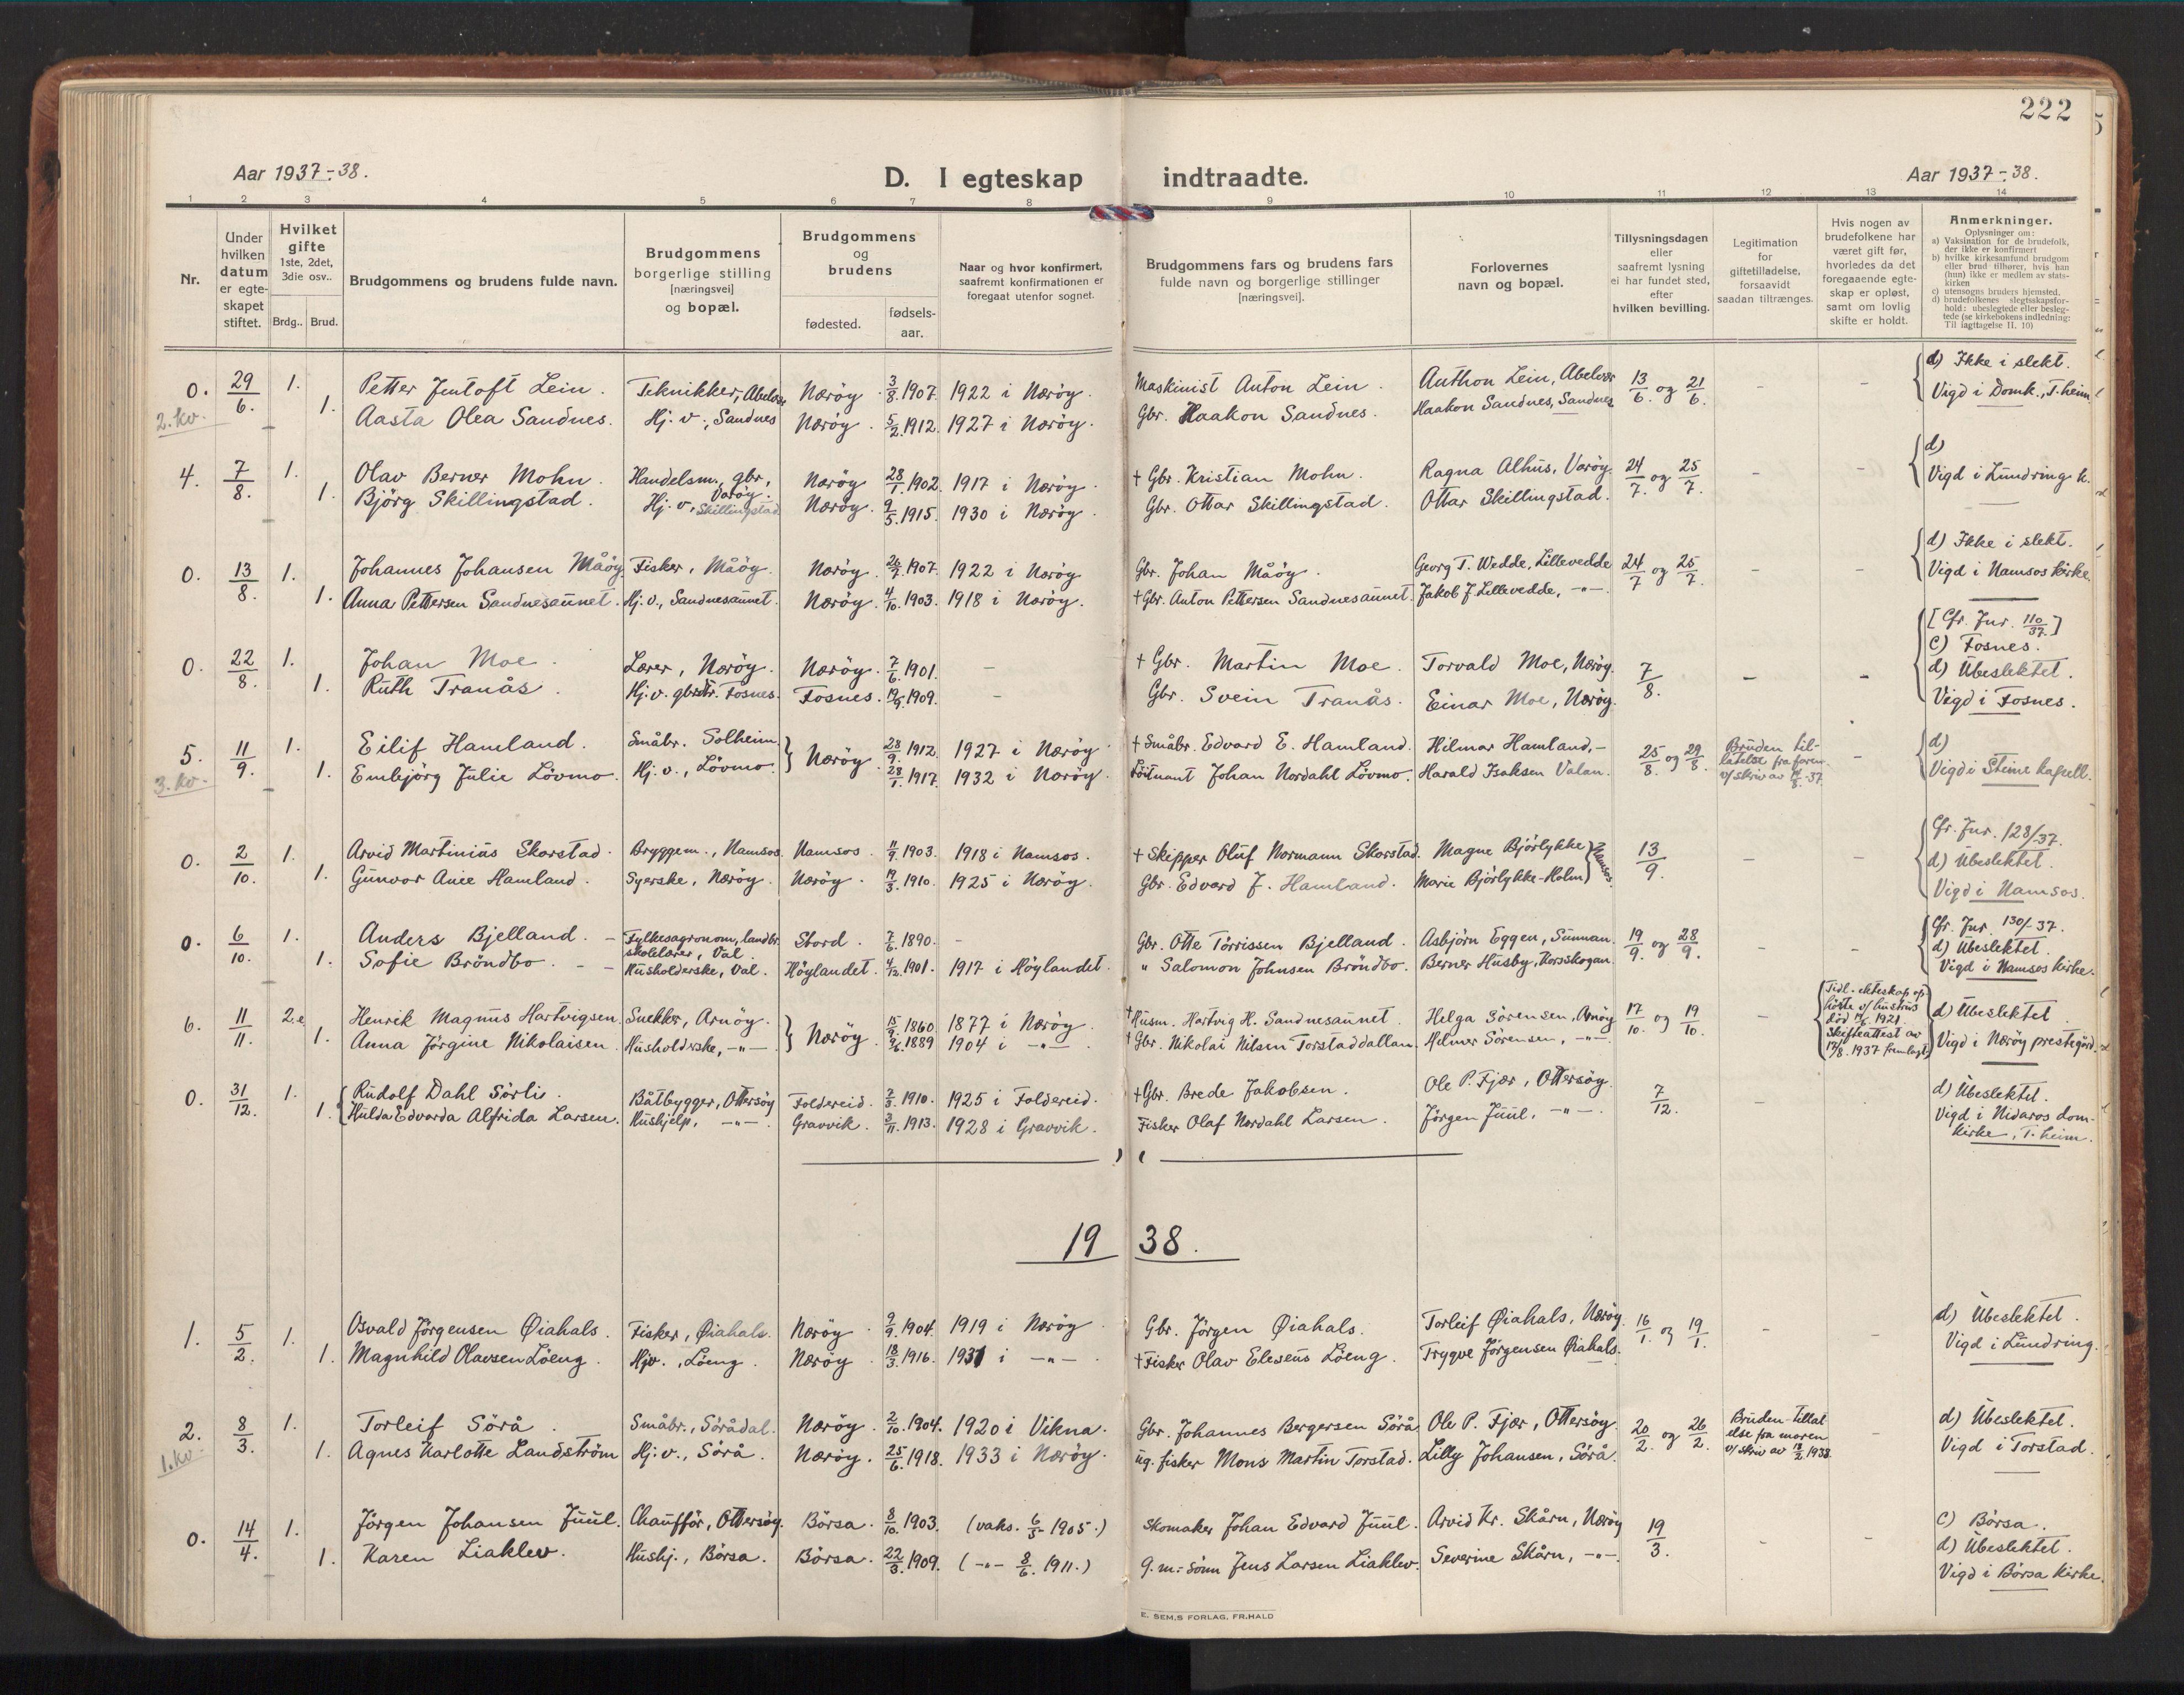 222
Aar 1937-38.
D. I egteskap indtraadte.
Aar 1937-38.
1 2 3 4 5 6 7 8 9 10 11 12 13 14
Nr.
Under hvilken datum er egteskapet stiftet.
Hvilket gifte 1ste, 2det, 3die osv..
Brdg.. Brud.
Brudgommens og brudens fulde navn.
Brudgommens borgerlige stilling [næringsvei] og bopæl.
Brudgommens og brudens
fødested.
fødselsaar.
Naar og hvor konfirmert, saafremt konfirmationen er foregaat utenfor sognet.
Brudgommens fars og brudens fars fulde navn og borgerlige stillinger [næringsvei].
Forlovernes navn og bopæl.
Tillysningsdagen eller saafremt lysning ei har fundet sted, efter hvilken bevilling.
Legitimation for giftetilladelse, forsaavidt saadan tiltrænges.
Hvis nogen av brudefolkene har været gift før, hvorledes da det foregaaende egteskap er opløst, samt om lovlig skifte er holdt.
Anmerkninger.
Oplysninger om:
a) Vaksination for de brudefolk, der ikke er konfirmert
b) hvilke kirkesamfund brudgom eller brud tilhører, hvis han (hun) ikke er medlem av statskirken
c) utensogns bruders hjemsted,
d) brudefolkenes slegtsskapsforhold: ubeslegtede eller beslegtede (se kirkebokens indledning: Til iagttagelse II. 10)
0. 29/6. 1. Petter Jentoft Lein. Teknikker, Abelvær Nærøy. 3/8.1907. 1922 i Nærøy. Maskinist Anton Lein. Anthon Lein, Abelvær 13/6. og 21/6. - - d) Ikke i slekt.
2. kv. 1. Aasta Olea Sandnes. Hj. v., Sandnes Nærøy. 5/2.1912. 1927 i Nærøy. Gbr. Haakon Sandnes. Haakon Sandnes, Sandnes Vigd i Domk., T.heim
4. 7/8. 1. Olav Berner Mohn. Handelsm., gbr, Varøy. Nærøy 28/1.1902. 1917 i Nærøy. † Gbr. Kristian Mohn. Ragna Alhus, Varøy. 24/7. og 25/7. - - d)
1. Bjørg Skillingstad. Hj. v., Skillingstad Nærøy. 9/5.1915. 1930 i Nærøy. Gbr. Ottar Skillingstad. Ottar Skillingstad. Vigd i Lundring k.
0. 13/8. 1. Johannes Johansen Måøy. Fisker, Måøy. Nærøy. 1907. 1922 i Nærøy Gbr. Johan Måøy. Georg T. Wedde, Lillevedde 24/7 og 25/7. - - d) Ikke i slekt.
1. Anna Pettersen Sandnesaunet. Hj. v., Sandnesaunet. Nærøy. 4/10.1903. 1918 i Nærøy. † Gbr. Anton Pettersen Sandnesaunet. Jakob J. Lillevedde, -"-. Vigd i Namsos kirke.
[Cfr. Jur. 110/37.]
0. 22/8. 1. Johan Moe. Lærer, Nærøy. Nærøy. 7/6.1901. - † Gbr. Martin Moe. Torvald Moe, Nærøy. 7/8. - - c) Fosnes.
1. Ruth Tranås. Hj. v. gbrdtr. Fosnes. Fosnes. 1909. - Gbr. Svein Tranås. Einar Moe, Nærøy. d) Ubeslektet.
Vigd i Fosnes.
5. 11/9. 1. Eilif Hamland. Småbr. Solheim. Nærøy 28/9.1912. 1927 i Nærøy. † Småbr. Edvard E. Hamland. Hilmar Hamland, - 25/8. og 29/8. Bruden tillatelse fra faren v/ skriv av -37. - d)
3. kv. 1. Embjørg Julie Løvmo. Hj. v., Løvmo. 28/1.1917. 1932 i Nærøy. Løitnant Johan Nordahl Løvmo. Harald Isaksen Valan. Vigd i Steine kapell.
0. 2/10. 1. Arvid Martinius Skorstad. Bryggem., Namsos. Namsos. 11/9.1903. 1918 i Namsos. † Skipper Oluf Normann Skorstad. Magne Bjørlykke Namsos. 13/9. - - Cfr. Jur. 128/37.
1. Gunvor Anie Hamland. Syerske, Nærøy. Nærøy. 19/3.1910. 1925 i Nærøy. Gbr. Edvard J. Hamland. Marie Bjørlykke-Holm d) Ubeslektet.
Vigd i Namsos.
0. 6/10. 1. Anders Bjelland. - Fylkesagronom, landbr. skolelærer, Val. Stord. 7/6.1890. - Gbr. Otte Tørrissen Bjelland. Asbjørn Eggen, Sunnan. 19/9. og 28/9. - - Cfr. Jur. 130/37.
1. Sofie Brøndbo. - - Husholderske, Val. Høylandet. 4/12.1901. 1917 i Høylandet. " Salomon Johnsen Brøndbo. Berner Husby, Korsskogan. d) Ubeslektet.
Vigd i Namsos kirke.
6. 11/11. 2.e Henrik Magnus Hartvigsen. Snekker, Arnøy. Nærøy. 15/9.1860. 1877 i Nærøy. † Husm. Hartvig H. Sandnesaunet. Helga Sørensen, Arnøy 17/10. og 19/10. - Tidl. ekteskap ophørte v/ hustrus død 1921. Skifteattest av 17/8.1937 fremlagt. d) Ubeslektet
1. Anna Jørgine Nikolaisen. Husholderske, -"- 9/6.1889 1904 i -"- † Gbr. Nikolai Nilsen Torstaddallan. Helmer Sørensen, -"-. Vigd i Nærøy prestegård.
0. 31/12. 1. Rudolf Dahl Sørli. Båtbygger, Ottersøy Foldereid. 2/3.1910. 1925 i Foldereid. † Gbr. Brede Jakobsen. Ole P. Fjær, Ottersøy. 7/12. - d) Ubeslektet.
1. Hulda Edvarda Alfrida Larsen. Hushjelp, -"-. Gravvik. 3/11.1913. 1928 i Gravvik. Fisker Olaf Nordahl Larsen. Jørgen Juul, -"-. Vigd i Nidaros domkirke, T.heim.
1938.
1. 5/2. 1. Osvald Jørgensen Øiahals. Fisker, Øiahals. Nærøy 9/9.1904. 1919 i Nærøy. Gbr. Jørgen Øiahals. Torleif Øiahals, Nærøy. 16/1. og 19/1. - - d) Ubeslektet.
1. Magnhild Olavsen Løeng. Hjv., Løeng. Nærøy 18/3.1916. 1931 i -"-. † Fisker Olav Eleseus Løeng. Trygve Jørgensen Øiahals. Vigd i Lundring.
2. 8/3. 1. Torleif Sørå. Småbr., Sørådal. Nærøy. 2/10.1904. 1920 i Vikna. Gbr. Johannes Bergersen Sørå Ole P. Fjær, Ottersøy. 20/2. og 26/2. Bruden tillatelse fra moren v/ skriv av 18/2 1938. - d) Ubeslektet.
1. kv. 1. Agnes Karlotte Landstrøm Hj. v., Sørå. Nærøy. 25/6.1918. 1933 i Nærøy. ug. fisker Mons Martin Torstad. Lilly Johansen, Sørå. Vigd i Torstad.
0. 14/4. 1. Jørgen Johansen Juul. Chauffør, Ottersøy. Børsa. 8/10.1903. (vaks. 6/5-1905.) Skomaker Johan Edvard Juul. Arvid Kr. Skårn, Nærøy 19/3. - - c) Børsa.
1. Karen Liaklev. Hushj., Børsa. Børsa. 22/3.1909. (-"- 8/6. 1911.) G.m.-sønn Jens Larsen Liaklev. Severine Skårn, -"-. d) Ubeslektet.
Vigd i Børsa kirke.
E. SEM.S FORLAG, FR.HALD